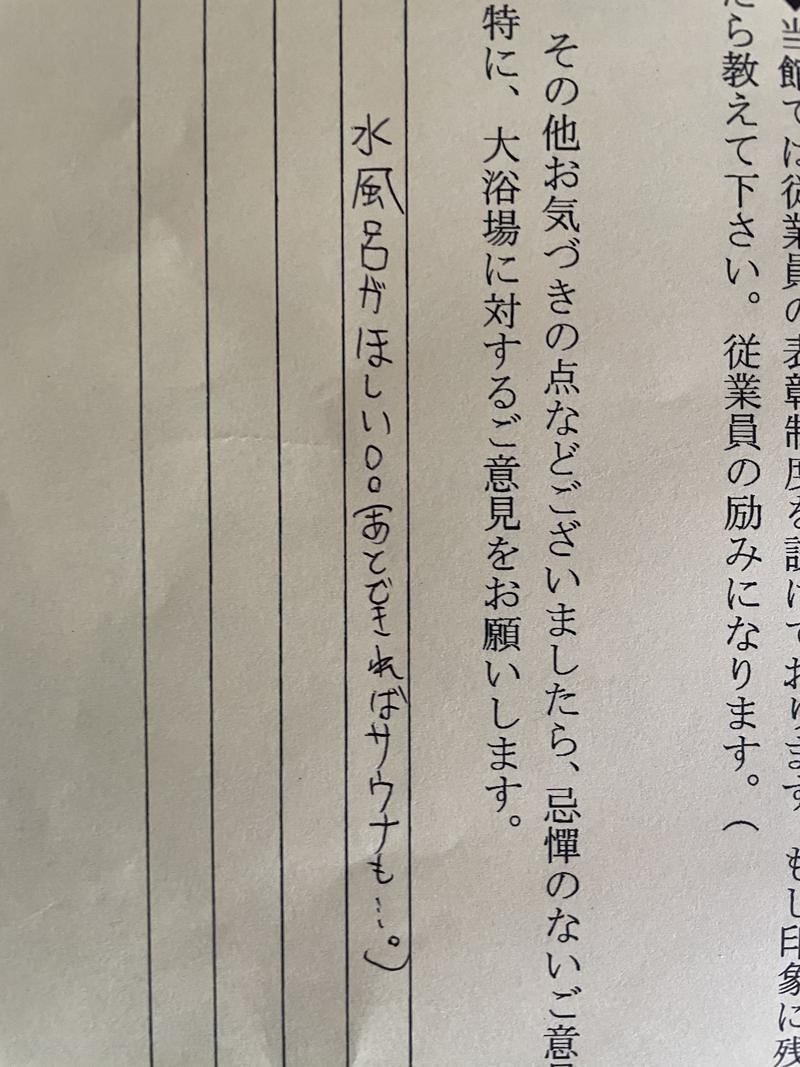 ◆当館では従業員の表彰制度を設けております。もし印象に残
たら教えて下さい。従業員の励みになります。（
その他お気づきの点などございましたら、忌憚のないご意見
特に、大浴場に対するご意見をお願いします。
水風呂がほしい○。(あとできればサウナも…。)